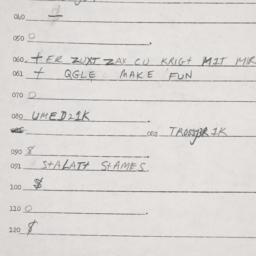 040
050 0
060 + ER ZUXT ZAX CU KRIGT MIT MIR
061 + QGLE MAKE FUN
070 0
080 UMED21K
083 TROOJPR1K
090 $
091 STALATT STAMES
100 $
110 0
120 $